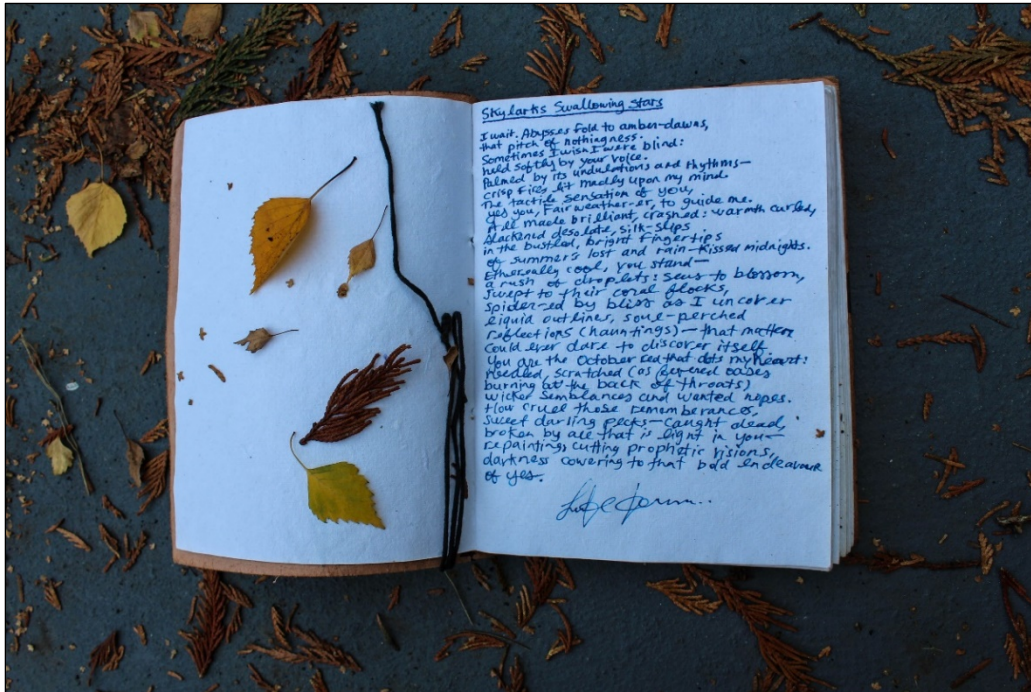 Skylarks Swallowing Stars
I wait. Abysses fold to amber-dawns,
that pitch of nothingness.
Sometimes I wish I were blind:
held softly by your voice.
Palmed by its undulations and rhythms—
crisp fires lit madly upon my mind
The tactile sensation of you,
yes you, Fairweather-er, to guide me.
All made brilliant, cragned: warmth curled,
blackened desolate, silk-slips
in the bustled, bright fingertips
of summer's lost and rain-kissed midnights.
Ethereally cool, you stand—
a rush of droplets: seus to blossom,
swept to their coral flocks,
spider-ed by bliss as I uncover
liquid outlines, soul-perched
reflections (hauntings)—that matter
could ever dare to discover itself
You are the October red that dots my heart:
Needled, scratched (as fevered oases
burning at the back of throats)
wicker semblances and wanted hopes.
How cruel those rememberances,
sweet darling pecks—caught dead,
broken by all that is light in you—
repainting, cutting prophetic visions,
darkness cowering to that bold endeavour
of yes.